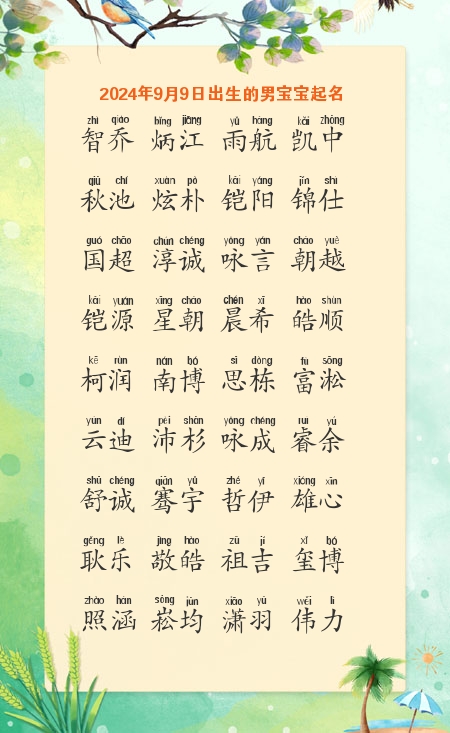 2024年9月9日出生的男宝宝起名
zhì qiáo bǐng jiāng yǔ háng kǎi zhōng
智乔 炳江 雨航 凯中
qiū chí xuàn pò kǎi yáng jǐn shì
秋池 炫朴 铠阳 锦仕
guó chāo chún chéng yǒng yán cháo yuè
国超 淳诚 咏言 朝越
kǎi yuán xīng cháo chén xī hào shùn
铠源 星朝 晨希 皓顺
kē rùn nán bó sī dòng fù sōng
柯润 南博 思栋 富淞
yún dí pèi shān yǒng chéng ruì yú
云迪 沛杉 咏成 睿余
shū chéng qiān yǔ zhé yī xióng xīn
舒诚 骞宇 哲伊 雄心
gěng lè jìng hào zǔ jí xǐ bó
耿乐 敬皓 祖吉 玺博
zhào hán sōng jūn xiāo yǔ wěi lì
照涵 崧均 潇羽 伟力